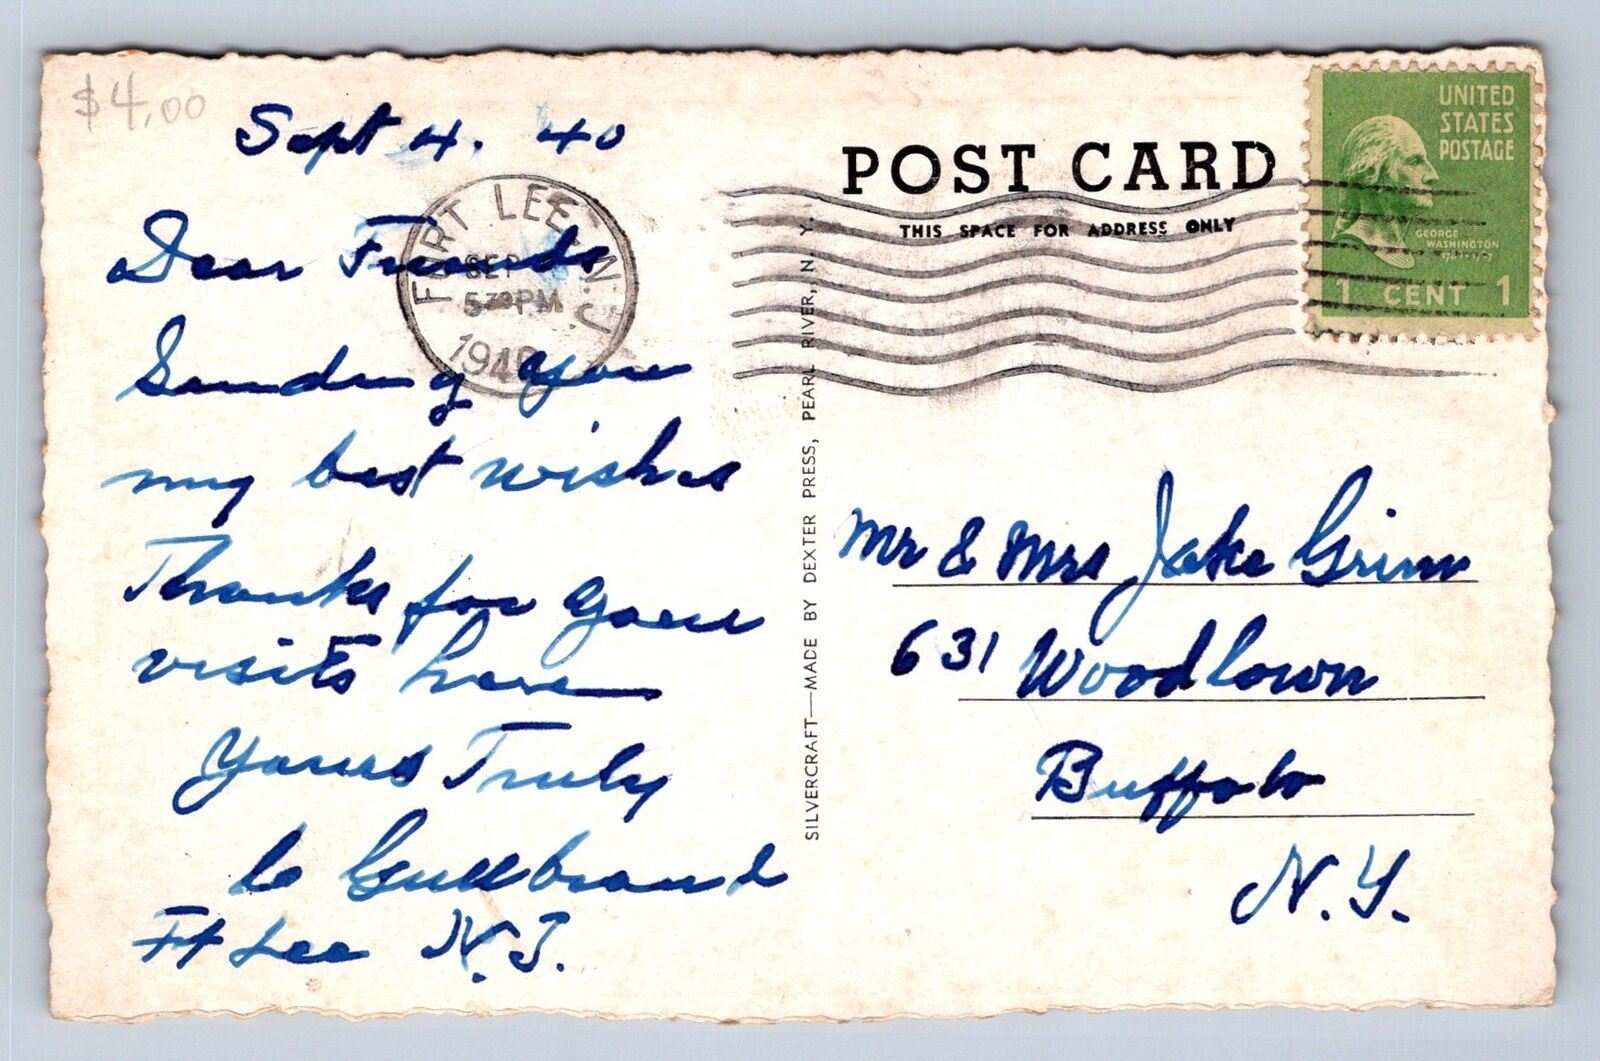 $4.00
Sept 4. 40
Dear Friends
Sending you
my best wishes
Thanks for your
visits here
Yours Truly
C Gulbrand
Ft Lee N.J.
FORT LEE, N.J.
SEP
5 30 PM
1940
SILVERCRAFT—MADE BY DEXTER PRESS, PEARL RIVER, N. Y.
POST CARD
THIS SPACE FOR ADDRESS ONLY
UNITED
STATES
POSTAGE
GEORGE
WASHINGTON
1 CENT 1
Mr & Mrs Jake Grimm
631 Woodlawn
Buffalo
N.Y.